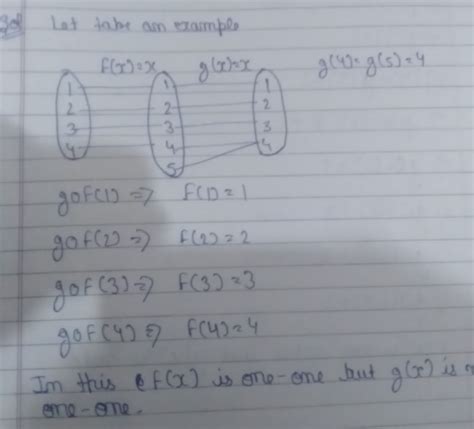 Sol Let take an example
f(x)=x g(x)=x g(4)=g(5)=4
1 1 1
2 2 2
3 3 3
4 4 4
5
gof(1) => f(1)=1
gof(2) => f(2)=2
gof(3) => f(3)=3
gof(4) => f(4)=4
In this f(x) is one-one but g(x) is
one-one.